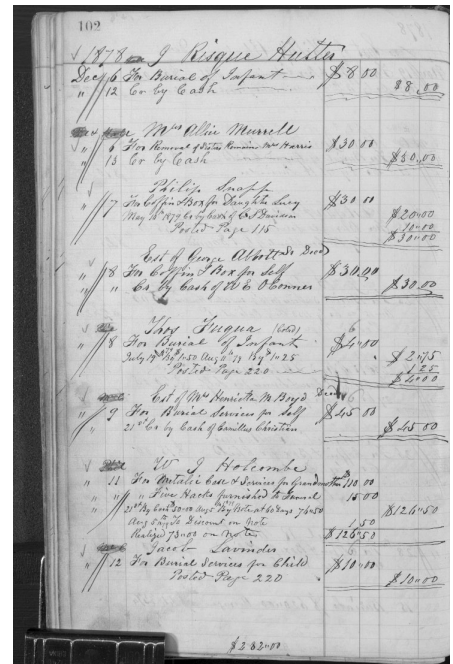 102
1878 J Risque Hutter
Decr 6 For Burial of Infant $8 00
" 12 Cr by Cash $8.00
Mrs Allie Murrell
" 6 For Removal of Sisters Remains Mrs Harris $30 00
" 13 Cr by Cash $30.00
Philip Snapp
" 7 For Coffin & Box for Daughter Lucy $30 00
May 1879 Cr by Cash of Davidson $20"00
Posted Page 115 10"00
$30"00
Est of George Abbott Decd
" 8 For Coffin & Box for Self $30.00
" " Cr. by Cash of W E O'Conner $30.00
Thos Fuqua (Cold)
" 8 For Burial of Infant $4"00
July 19th By 1"50 Aug 11" 79 By 1"25 $2"75
Posted Page 220 1 25
$4"00
Est of Mrs Henrietta M. Boyd Decd
" 9 For Burial Services for Self $45 00
" 21st Cr by Cash of Camillus Christian $45.00
W J Holcombe
" 11 For Metalic Case & Services for Grandmother 110.00
" " " Five Hacks furnished to Funeral 15 00
21st By Cash 50"00 Note at 60 days 76"50 $126"50
Aug To Discount on Note 1,50
Realized 73"00 on Note $126"50
Jacob Lavinder
" 12 For Burial Services for Child $10"00
Posted Page 220 $10"00
$282"00